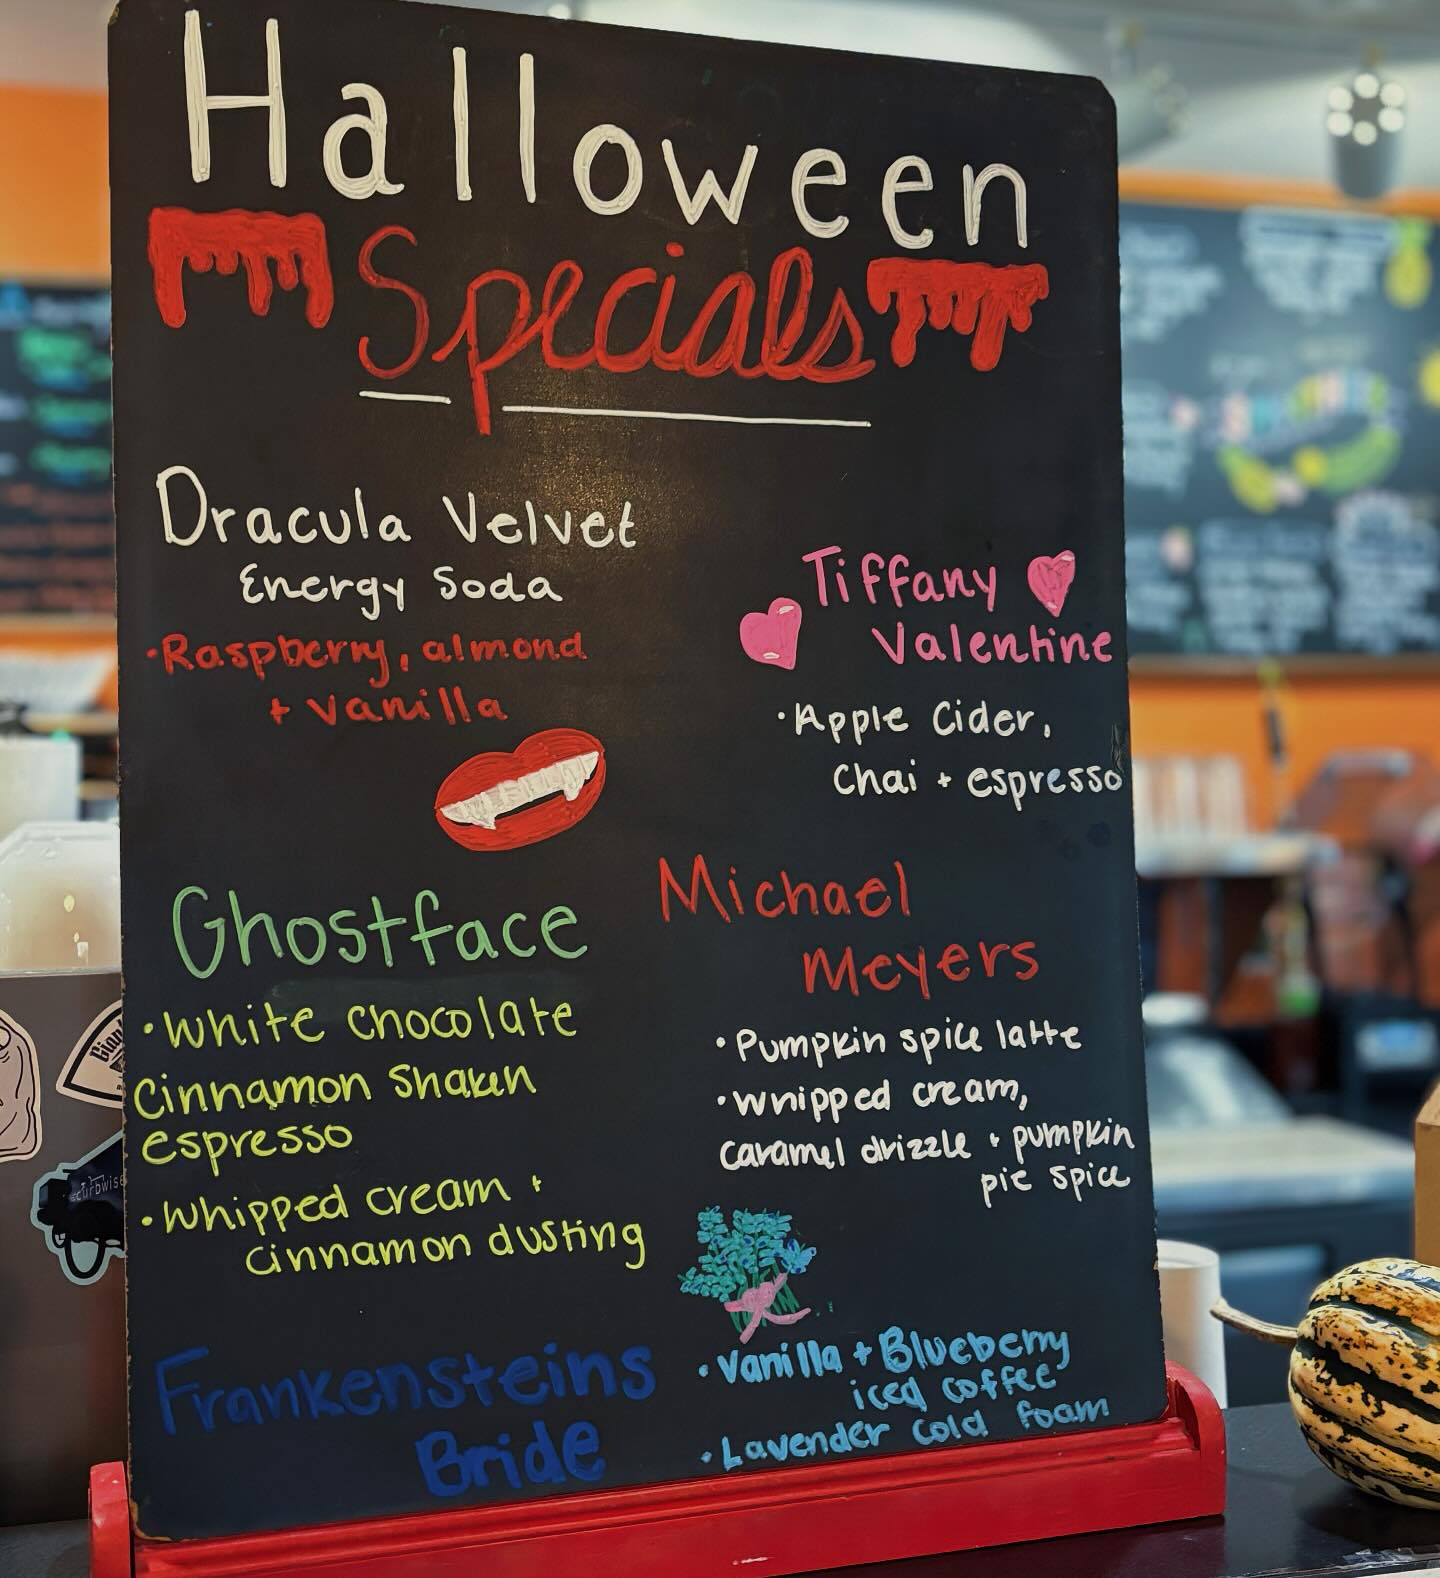 Halloween
Specials
Dracula Velvet
Energy Soda
·Raspberry, almond
+ vanilla
Tiffany
Valentine
·Apple Cider,
Chai + espresso
Ghostface
·White chocolate
Cinnamon Shaken
espresso
·Whipped cream +
cinnamon dusting
Michael
Meyers
·Pumpkin spice latte
·Whipped cream,
caramel drizzle + pumpkin
pie spice
Frankensteins
Bride
·Vanilla + Blueberry
iced coffee
·Lavender cold foam